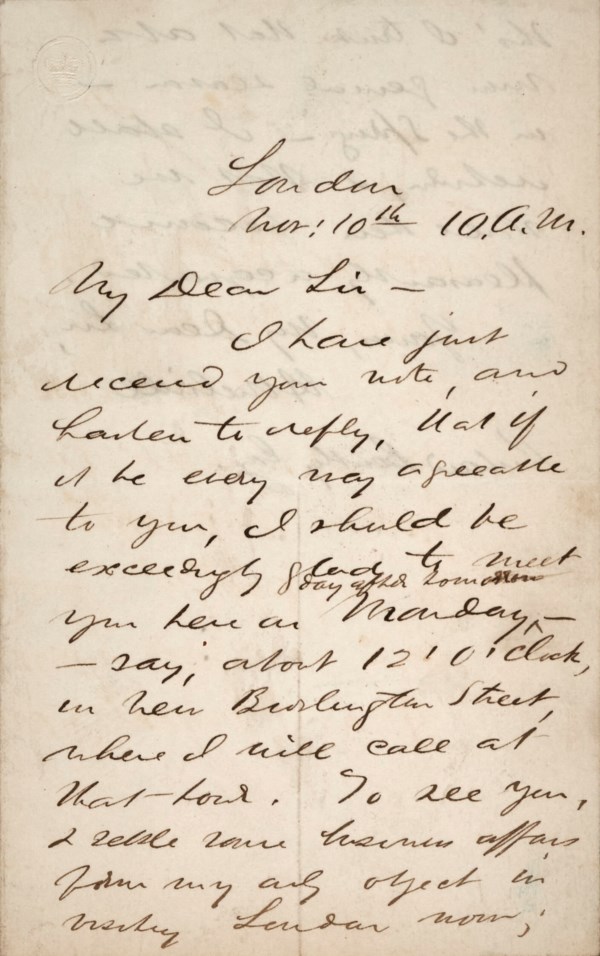 London
Nov: 10th 10.A.M.
My Dear Sir —
I have just
received your note, and
hasten to reply, that if
it be every way agreeable
to you, I should be
exceedingly glad to meet
day after tomorrow
you here on Monday, —
— say, about 12' O' Clock,
in New Burlington Street,
where I will call at
that hour. To see you,
& settle some business affairs
form my only object in
visiting London now;